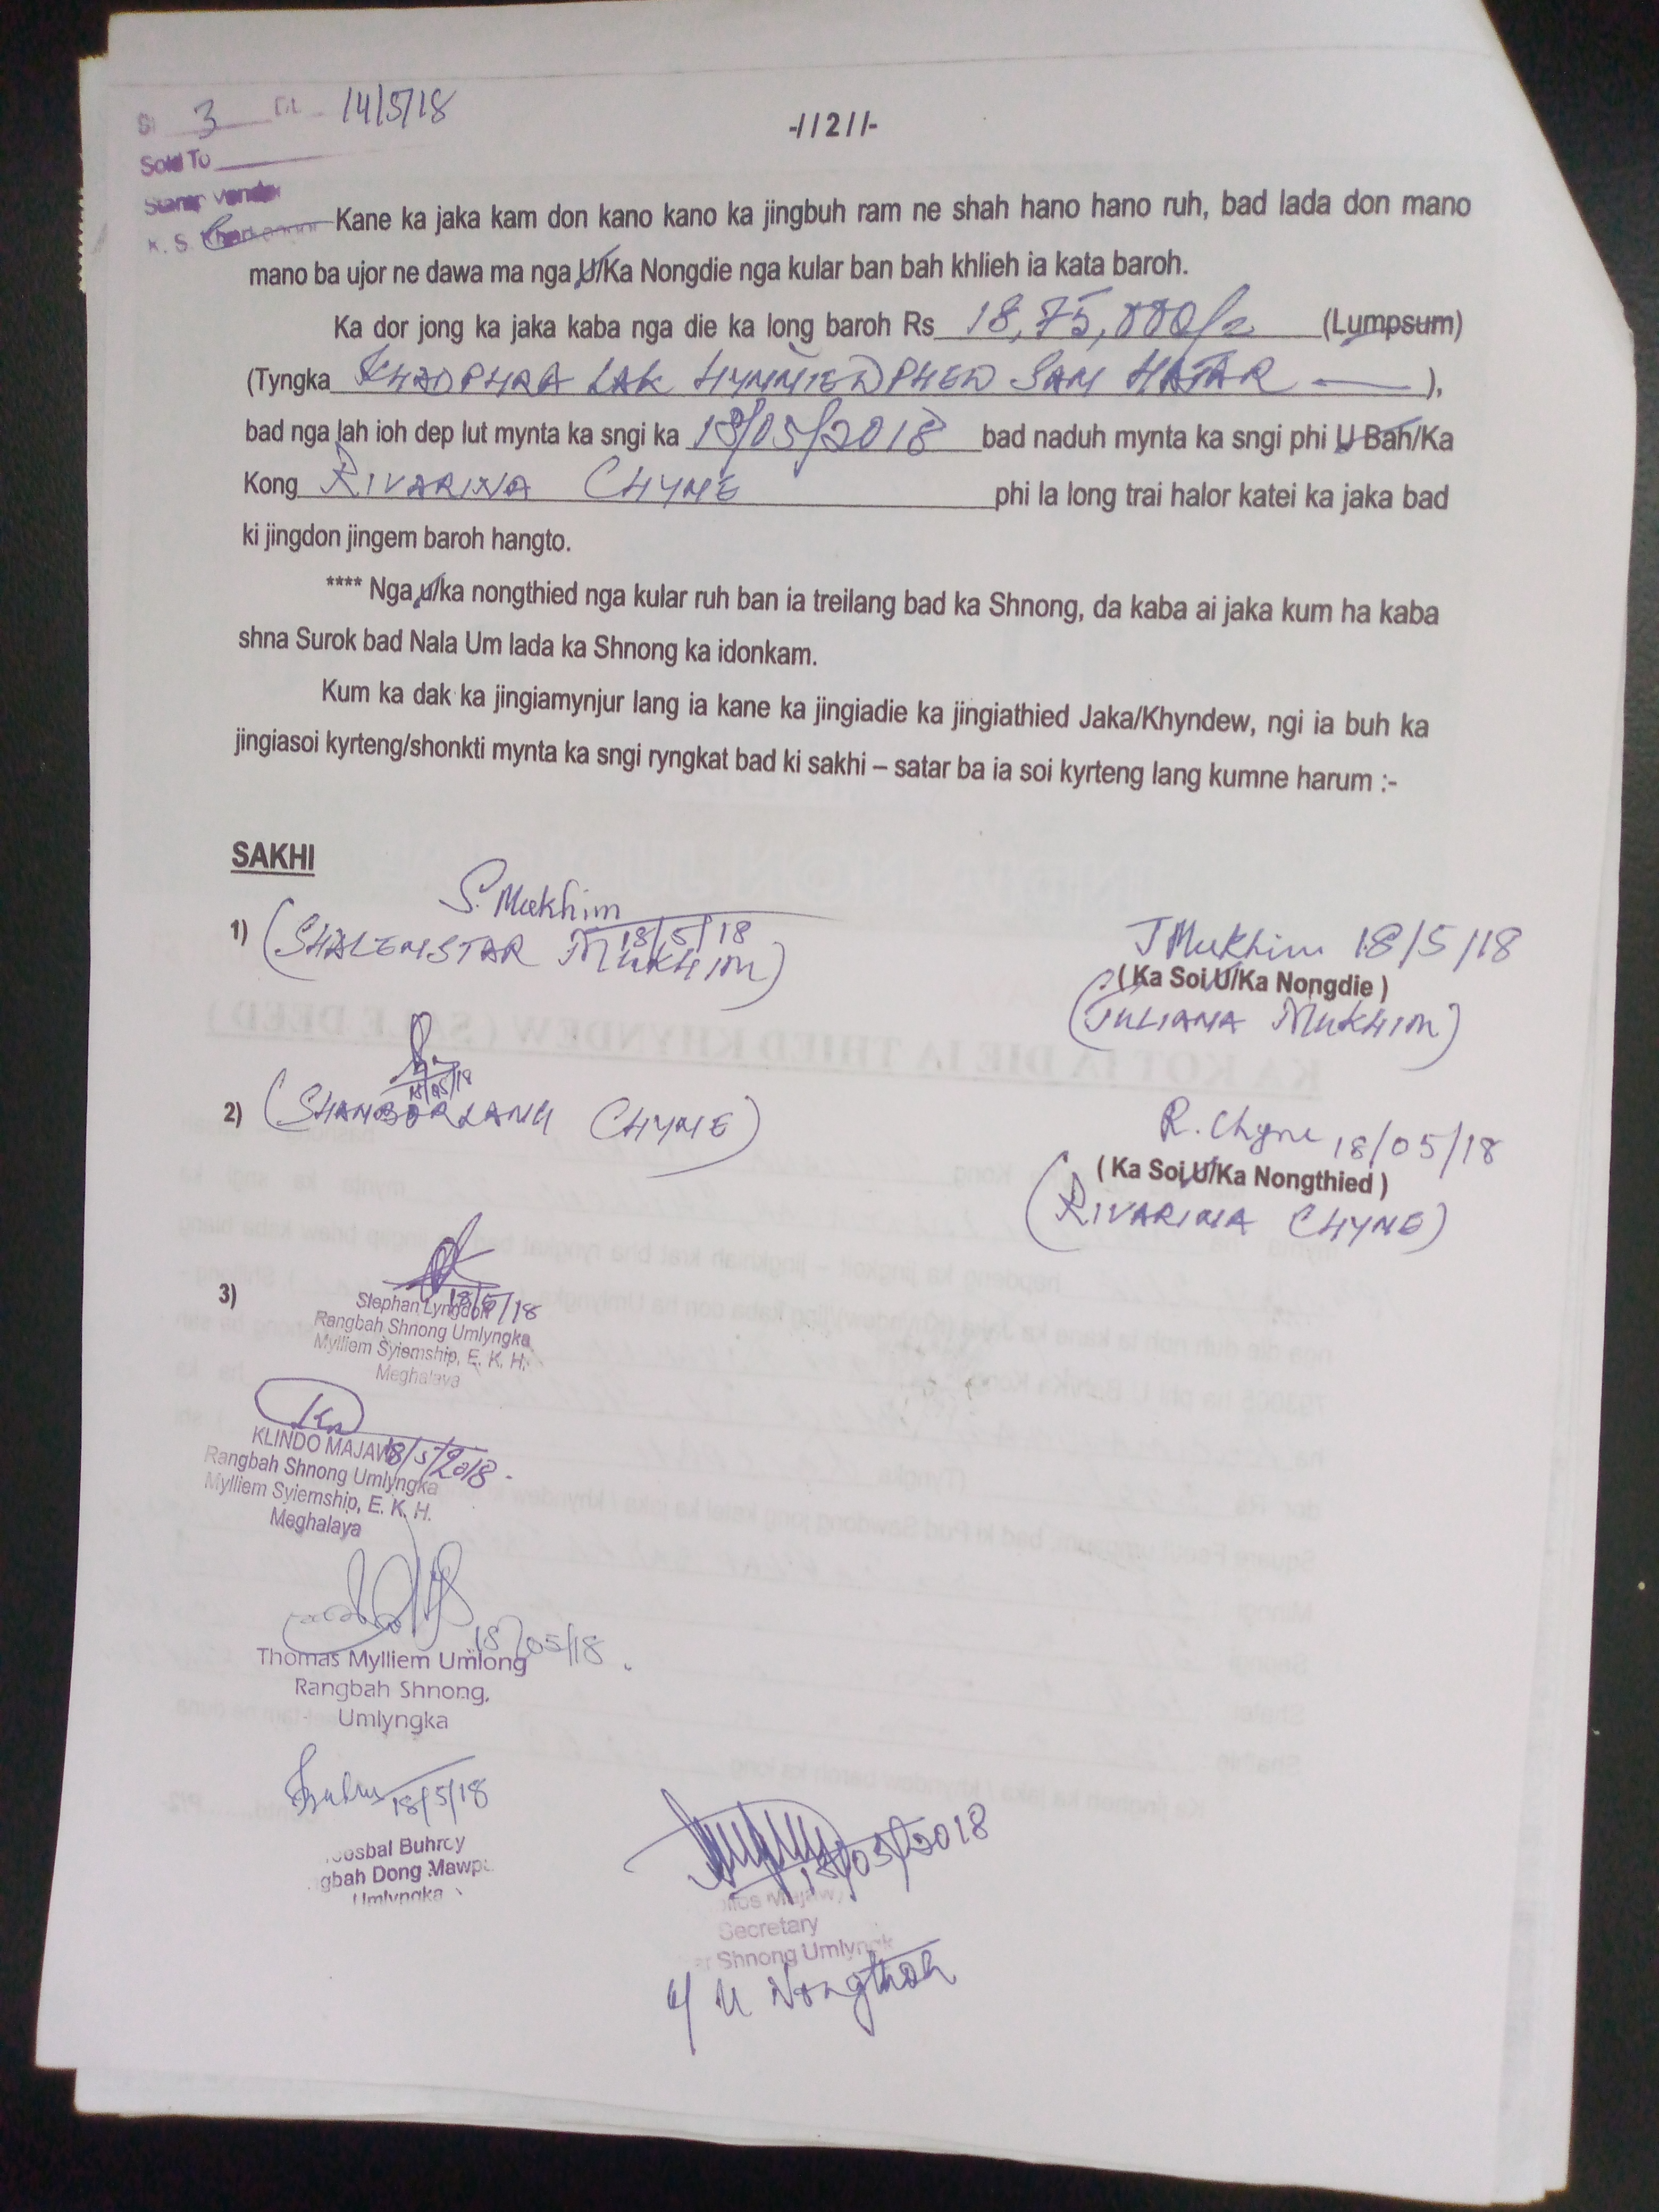 3 14/5/18
-//2//-
Sold To
Stamp Vendor
K. S.
Kane ka jaka kam don kano kano ka jingbuh ram ne shah hano hano ruh, bad lada don mano
mano ba ujor ne dawa ma nga U/Ka Nongdie nga kular ban bah khlieh ia kata baroh.
Ka dor jong ka jaka kaba nga die ka long baroh Rs 18,75,000/= (Lumpsum)
(Tyngka KHADPHRA LAK HYNNIEWPHEW SAN HAJAR ),
bad nga lah ioh dep lut mynta ka sngi ka 18/05/2018 bad naduh mynta ka sngi phi U Bah/Ka
Kong RIVARINA CHYNE phi la long trai halor katei ka jaka bad
ki jingdon jingem baroh hangto.
**** Nga u/ka nongthied nga kular ruh ban ia treilang bad ka Shnong, da kaba ai jaka kum ha kaba
shna Surok bad Nala Um lada ka Shnong ka idonkam.
Kum ka dak ka jingiamynjur lang ia kane ka jingiadie ka jingiathied Jaka/Khyndew, ngi ia buh ka
jingiasoi kyrteng/shonkti mynta ka sngi ryngkat bad ki sakhi – satar ba ia soi kyrteng lang kumne harum :-
SAKHI
S. Mukhim
18/5/18
1) (SHALEMSTAR MUKHIM)
J Mukhim 18/5/18
( Ka Soi U/Ka Nongdie )
(JULIANA MUKHIM)
18/05/18
2) (SHANBORLANG CHYNE)
R. Chyne 18/05/18
( Ka Soi U/Ka Nongthied )
(RIVARINA CHYNE)
3) 18/5/18
Stephan Lyngdoh
Rangbah Shnong Umlyngka
Mylliem Syiemship, E. K. H.
Meghalaya
KLINDO MAJAW 18/5/2018
Rangbah Shnong Umlyngka
Mylliem Syiemship, E. K. H.
Meghalaya
18/05/18
Thomas Mylliem Umlong
Rangbah Shnong,
Umlyngka
18/5/18
Buhroy
Dong
Umlyngka
18/05/2018
Majaw
Secretary
Shnong Umlyngk
U Nongthoh